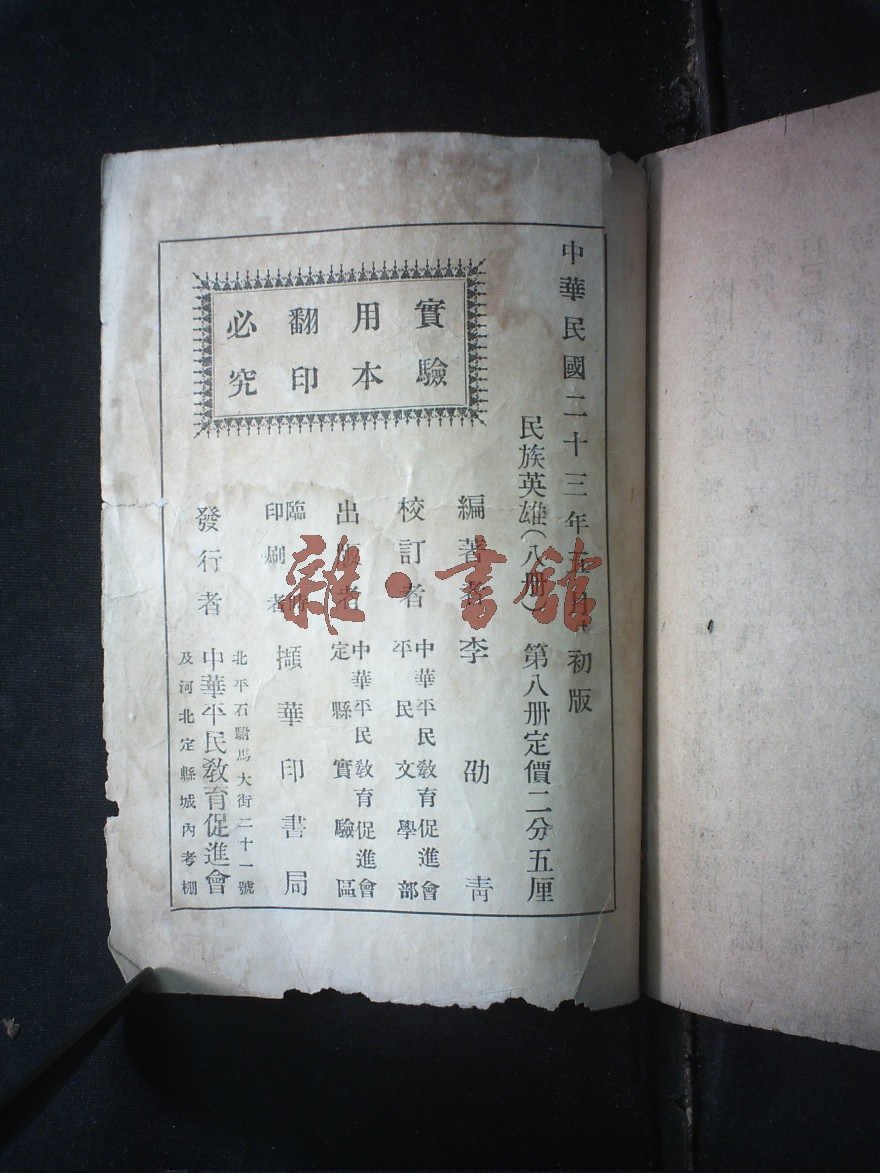 中華民國二十三年五月初版
民族英雄(八册) 第八册定價二分五厘
實驗
用本
翻印
必究
編著者 李劭青
校訂者 中華平民教育促進會
平民文學部
出版者 中華平民教育促進會
定縣實驗區
臨時
印刷者 擷華印書局
發行者 中華平民教育促進會
北平石駙馬大街二十一號
及河北定縣城內考棚
雜·書館